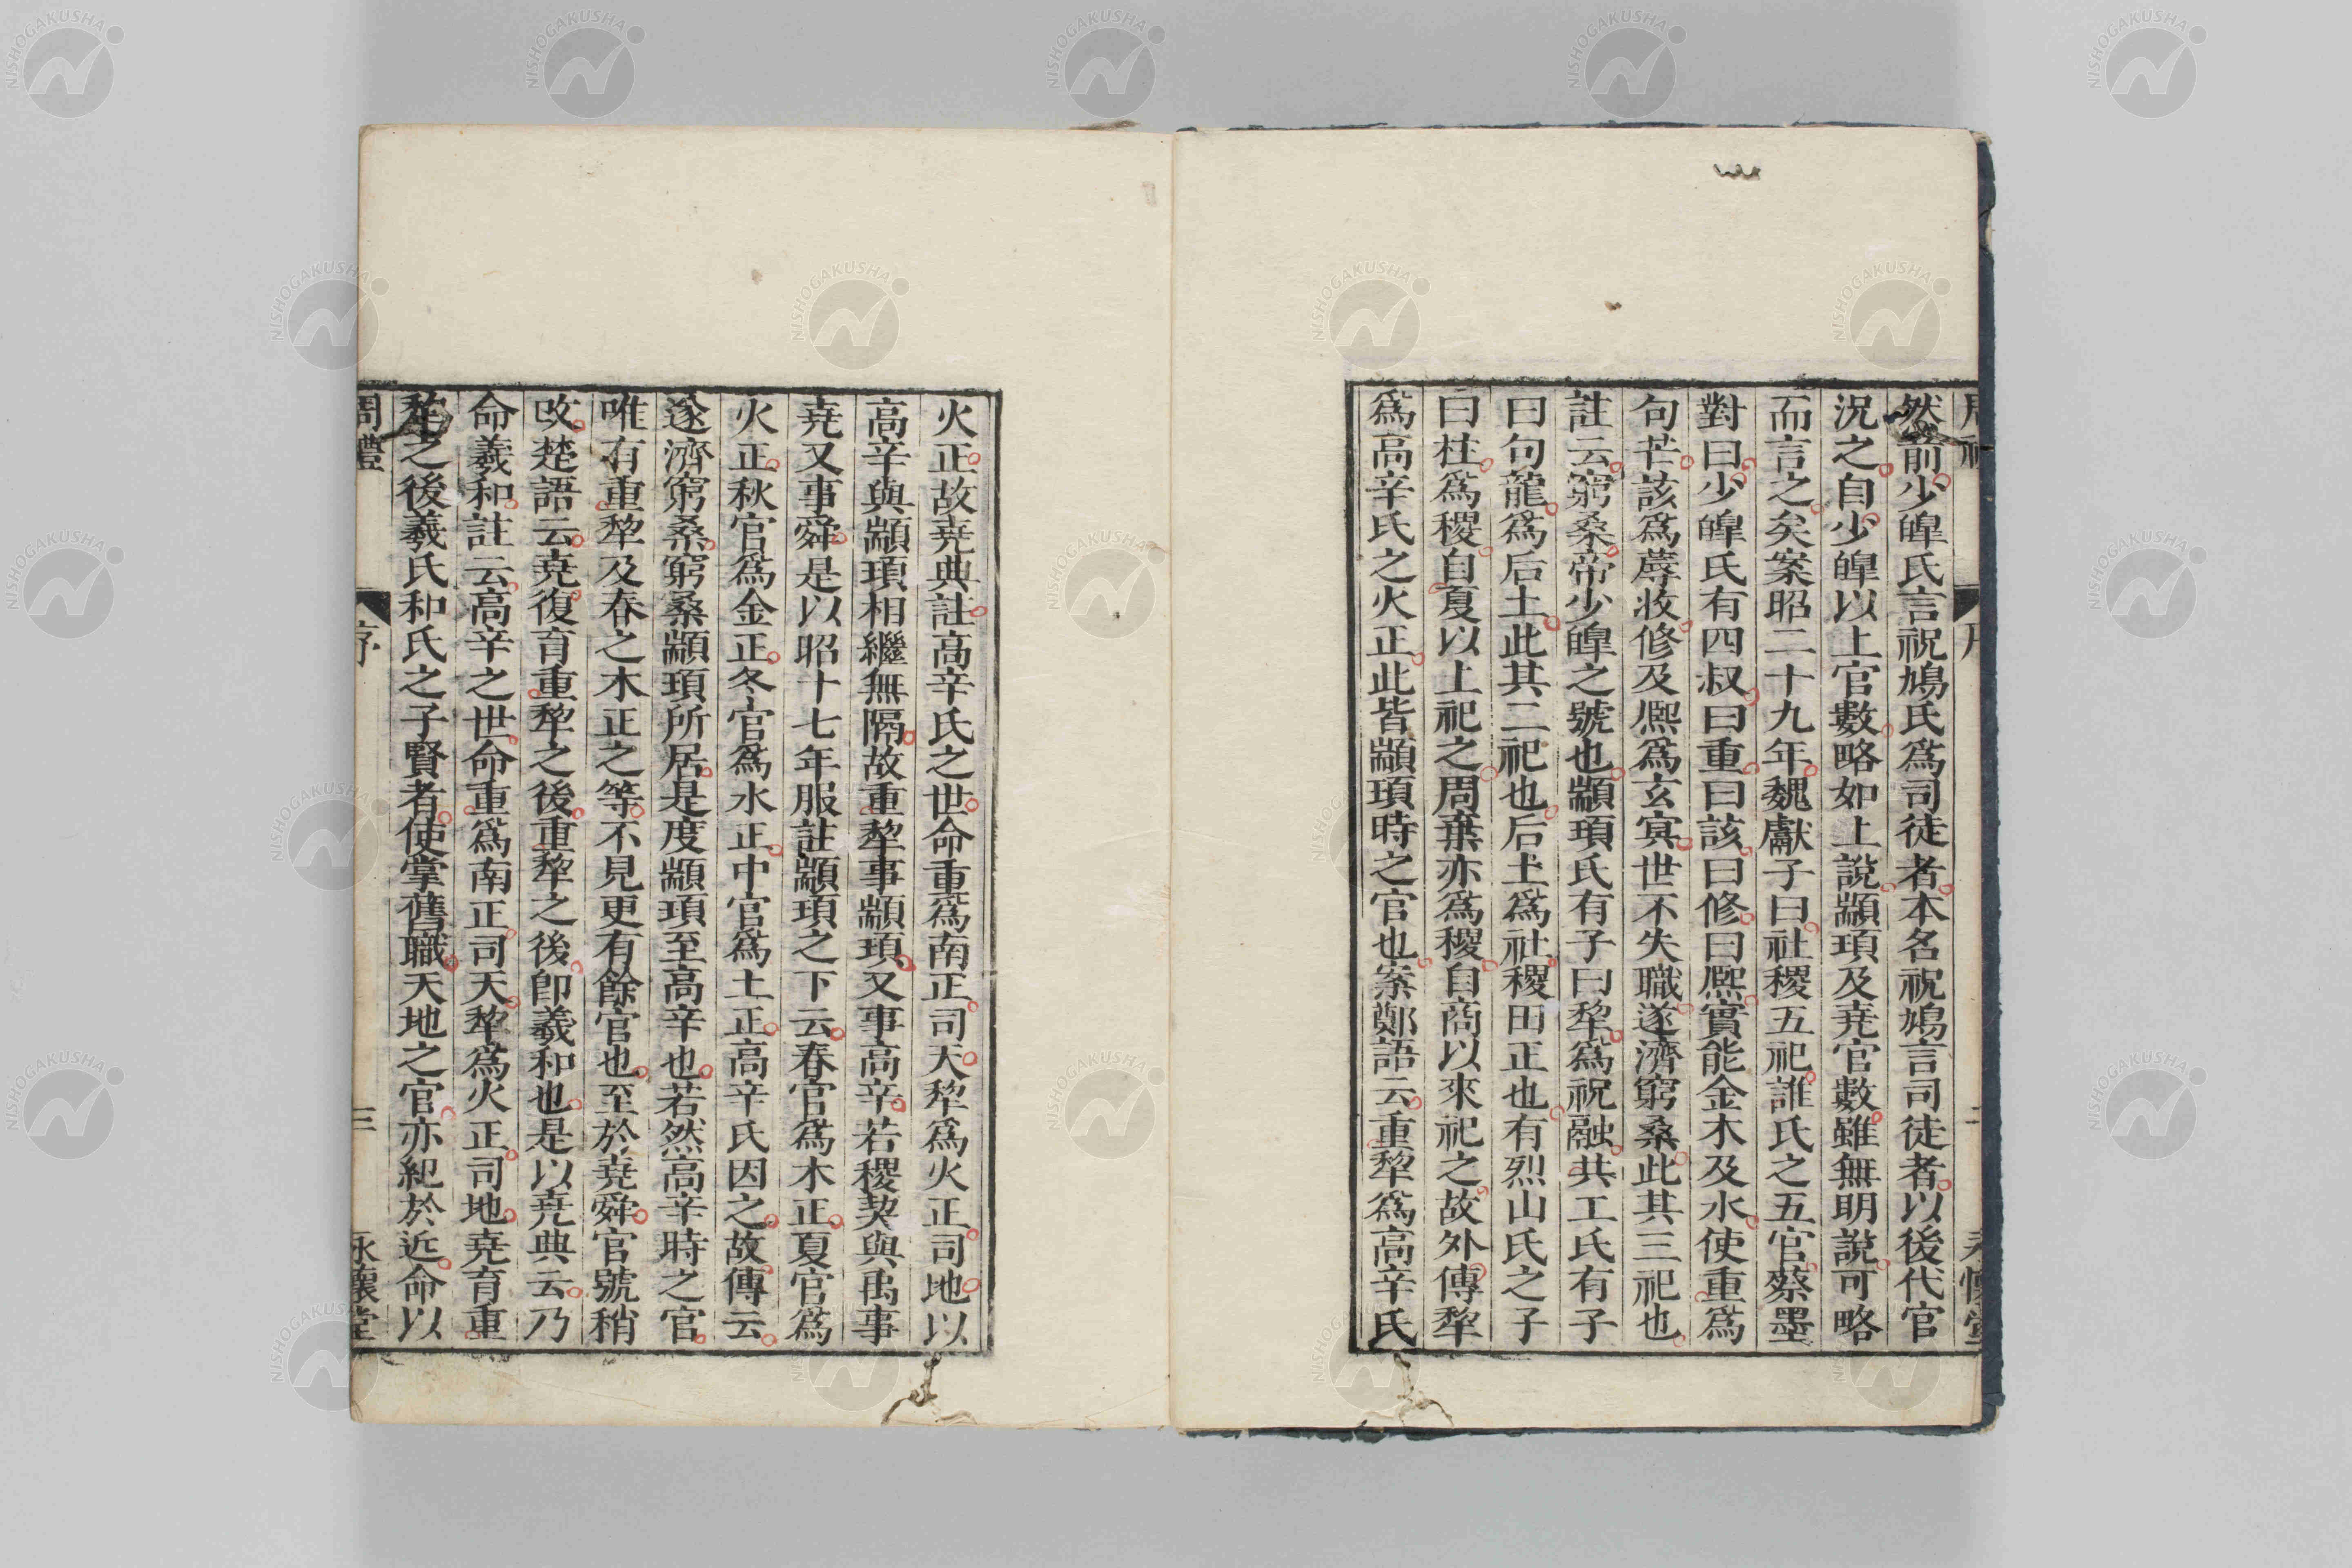 然前少皥氏言祝鳩氏爲司徒者本名祝鳩言司徒者以後代官
況之自少皥以上官數略如上說顓頊及堯官數雖無明說可略
而言之矣案昭二十九年魏獻子曰社稷五祀誰氏之五官蔡墨
對曰少皥氏有四叔曰重曰該曰修曰熈實能金木及水使重爲
句芒該爲蓐收修及熈爲玄冥世不失職遂濟窮桑此其三祀也
註云窮桑帝少皥之號也顓頊氏有子曰犂爲祝融共工氏有子
曰句龍爲后土此其二祀也后土爲社稷田正也有烈山氏之子
曰柱爲稷自夏以上祀之周棄亦爲稷自商以來祀之故外傳犂
爲高辛氏之火正此皆顓頊時之官也案鄭語云重犂爲高辛氏
火正故堯典註高辛氏之世命重爲南正司天犂爲火正司地以
高辛與顓頊相繼無隔故重犂事顓頊又事高辛若稷契與禹事
堯又事舜是以昭十七年服註顓頊之下云春官爲木正夏官爲
火正秋官爲金正冬官爲水正中官爲土正高辛氏因之故傳云
遂濟窮桑窮桑顓頊所居是度顓頊至高辛也若然高辛時之官
唯有重犂及春之木正之等不見更有餘官也至於堯舜官號稍
改楚語云堯復育重犂之後重犂之後卽羲和也是以堯典云乃
命羲和註云高辛之世命重爲南正司天犂爲火正司地堯育重
犂之後羲氏和氏之子賢者使掌舊職天地之官亦紀於近命以
周禮 序 三 永懷堂
NISHOGAKUSHA